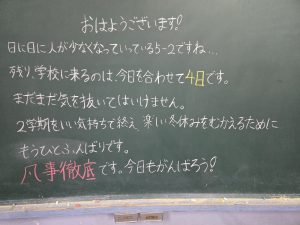 おはようございます!
日に日に人が少なくなっていっている5-2ですね...
残り、学校に来るのは、今日を合わせて4日です。
まだまだ気を抜いてはいけません。
2学期をいい気持ちで終え、楽しい冬休みをむかえるために
もうひとふんばりです。
凡事徹底です。今日もがんばろう!